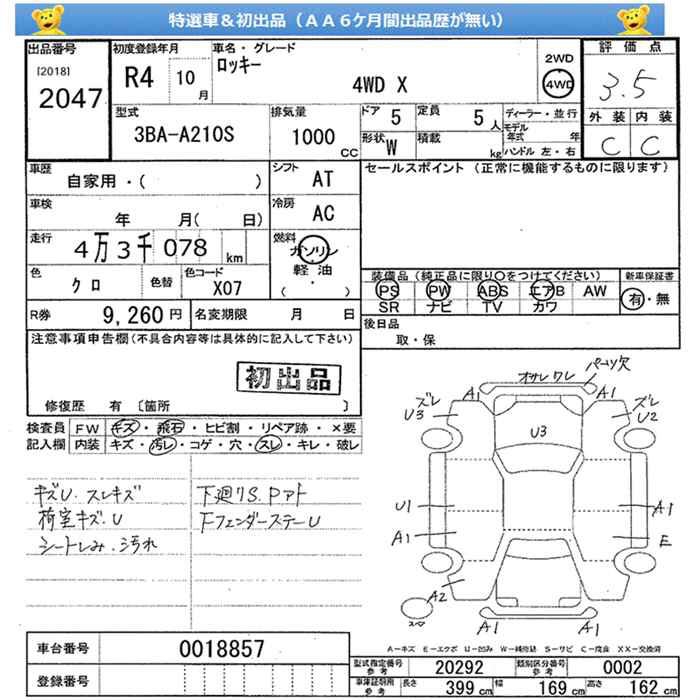 特選車＆初出品（ＡＡ６ケ月間出品歴が無い）
出品番号 [2018] 2047
初度登録年月 R4 10月
車名・グレード ロッキー 4WD X
2WD 4WD
評価点 3.5
外装 C 内装 C
型式 3BA-A210S
排気量 1000 CC
ドア 5 定員 5人
形状 W 積載 kg
ディーラー・並行
モデル年式 年
ハンドル 左・右
車歴 自家用・( )
シフト AT
セールスポイント (正常に機能するものに限ります)
車検 年 月( 日)
冷房 AC
走行 4万3千078km
燃料 ガソリン 軽油・( )
色 クロ 色替 色コード X07
装備品 (純正品に限り〇をつけてください) 新車保証書
PS PW ABS エアB AW
SR ナビ TV カワ
有・無
R券 9,260円 名変期限 月 日
後日品 取・保
注意事項申告欄(不具合内容等は具体的に記入して下さい)
初出品
修復歴 有 〔箇所 〕
検査員記入欄 FW キズ・飛石・ヒビ割・リペア跡・×要
内装 キズ・汚レ・コゲ・穴・スレ・キレ・破レ
キズU.スレキズ
荷室キズ.U
シートしみ.汚れ
下廻りS.Pアト
Fフェンダーステー U
オサレワレ パーツ欠
ズレ U3 A1 A1 ズレ U2
U3
U1 A1
A1 E
A2
スペア A1 A1
A－キズ E－エクボ U－凹み W－補修跡 S－サビ C－腐食 XX－交換済
車台番号 0018857
登録番号
型式指定番号 参考 20292 類別区分番号 参考 0002
車庫証明用 参考 長さ 399cm 幅 169cm 高さ 162cm